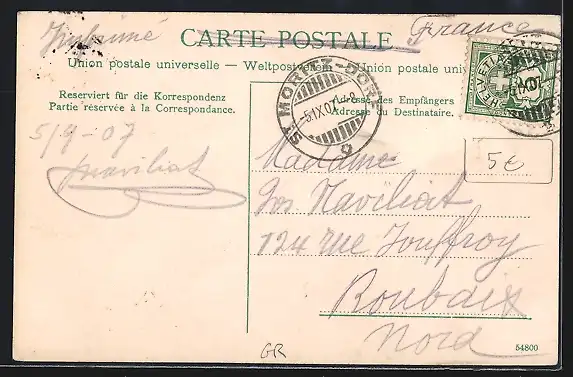 Imprimé
France
CARTE POSTALE
Union postale universelle — Weltpostverein — Union postale uni
Reserviert für die Korrespondenz
Partie réservée à la Correspondance.
des Empfängers
Adresse du Destinataire.
ST. MORITZ-DORF
5.IX.07.-8
HELVETIA
5/9-07
Naviliat
5€
Madame
Jos Naviliat
124 rue Jouffroy
Roubaix
Nord
GR
54800